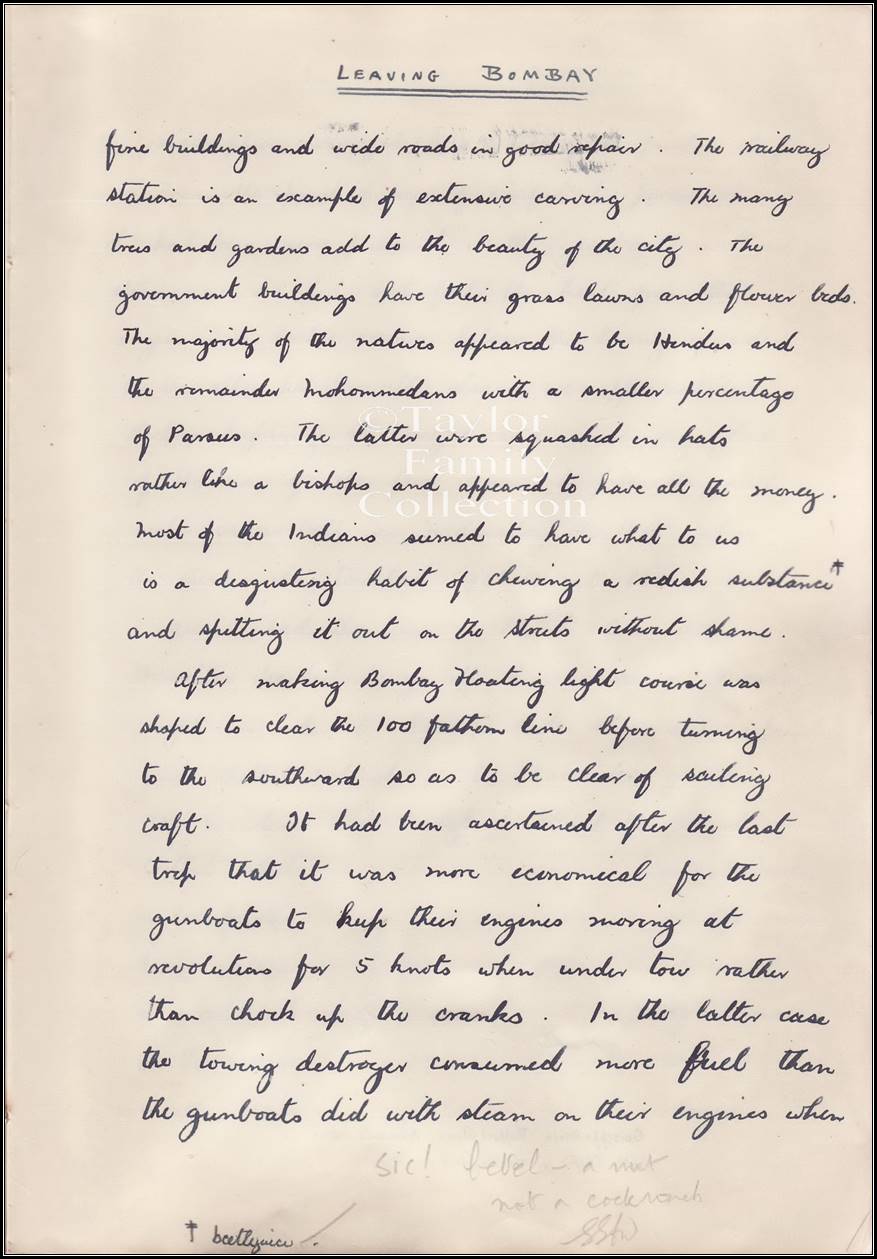 LEAVING BOMBAY
fine buildings and wide roads in good repair. The railway
station is an example of extensive carving. The many
trees and gardens add to the beauty of the city. The
government buildings have their grass lawns and flower beds.
The majority of the natives appeared to be Hindus and
the remainder Mohommedans with a smaller percentage
of Parsees. The latter were squashed in hats
rather like a bishops and appeared to have all the money.
Most of the Indians seemed to have what to us
is a disgusting habit of chewing a redish substance†
and spitting it out on the streets without shame.
After making Bombay Floating light course was
shaped to clear the 100 fathom line before turning
to the southward so as to be clear of sailing
craft. It had been ascertained after the last
trip that it was more economical for the
gunboats to keep their engines moving at
revolutions for 5 knots when under tow rather
than chock up the cranks. In the latter case
the towing destroyer consumed more fuel than
the gunboats did with steam on their engines when
sic! betel - a nut
not a cockroach
† beetlejuice.
©Taylor
Family
Collection